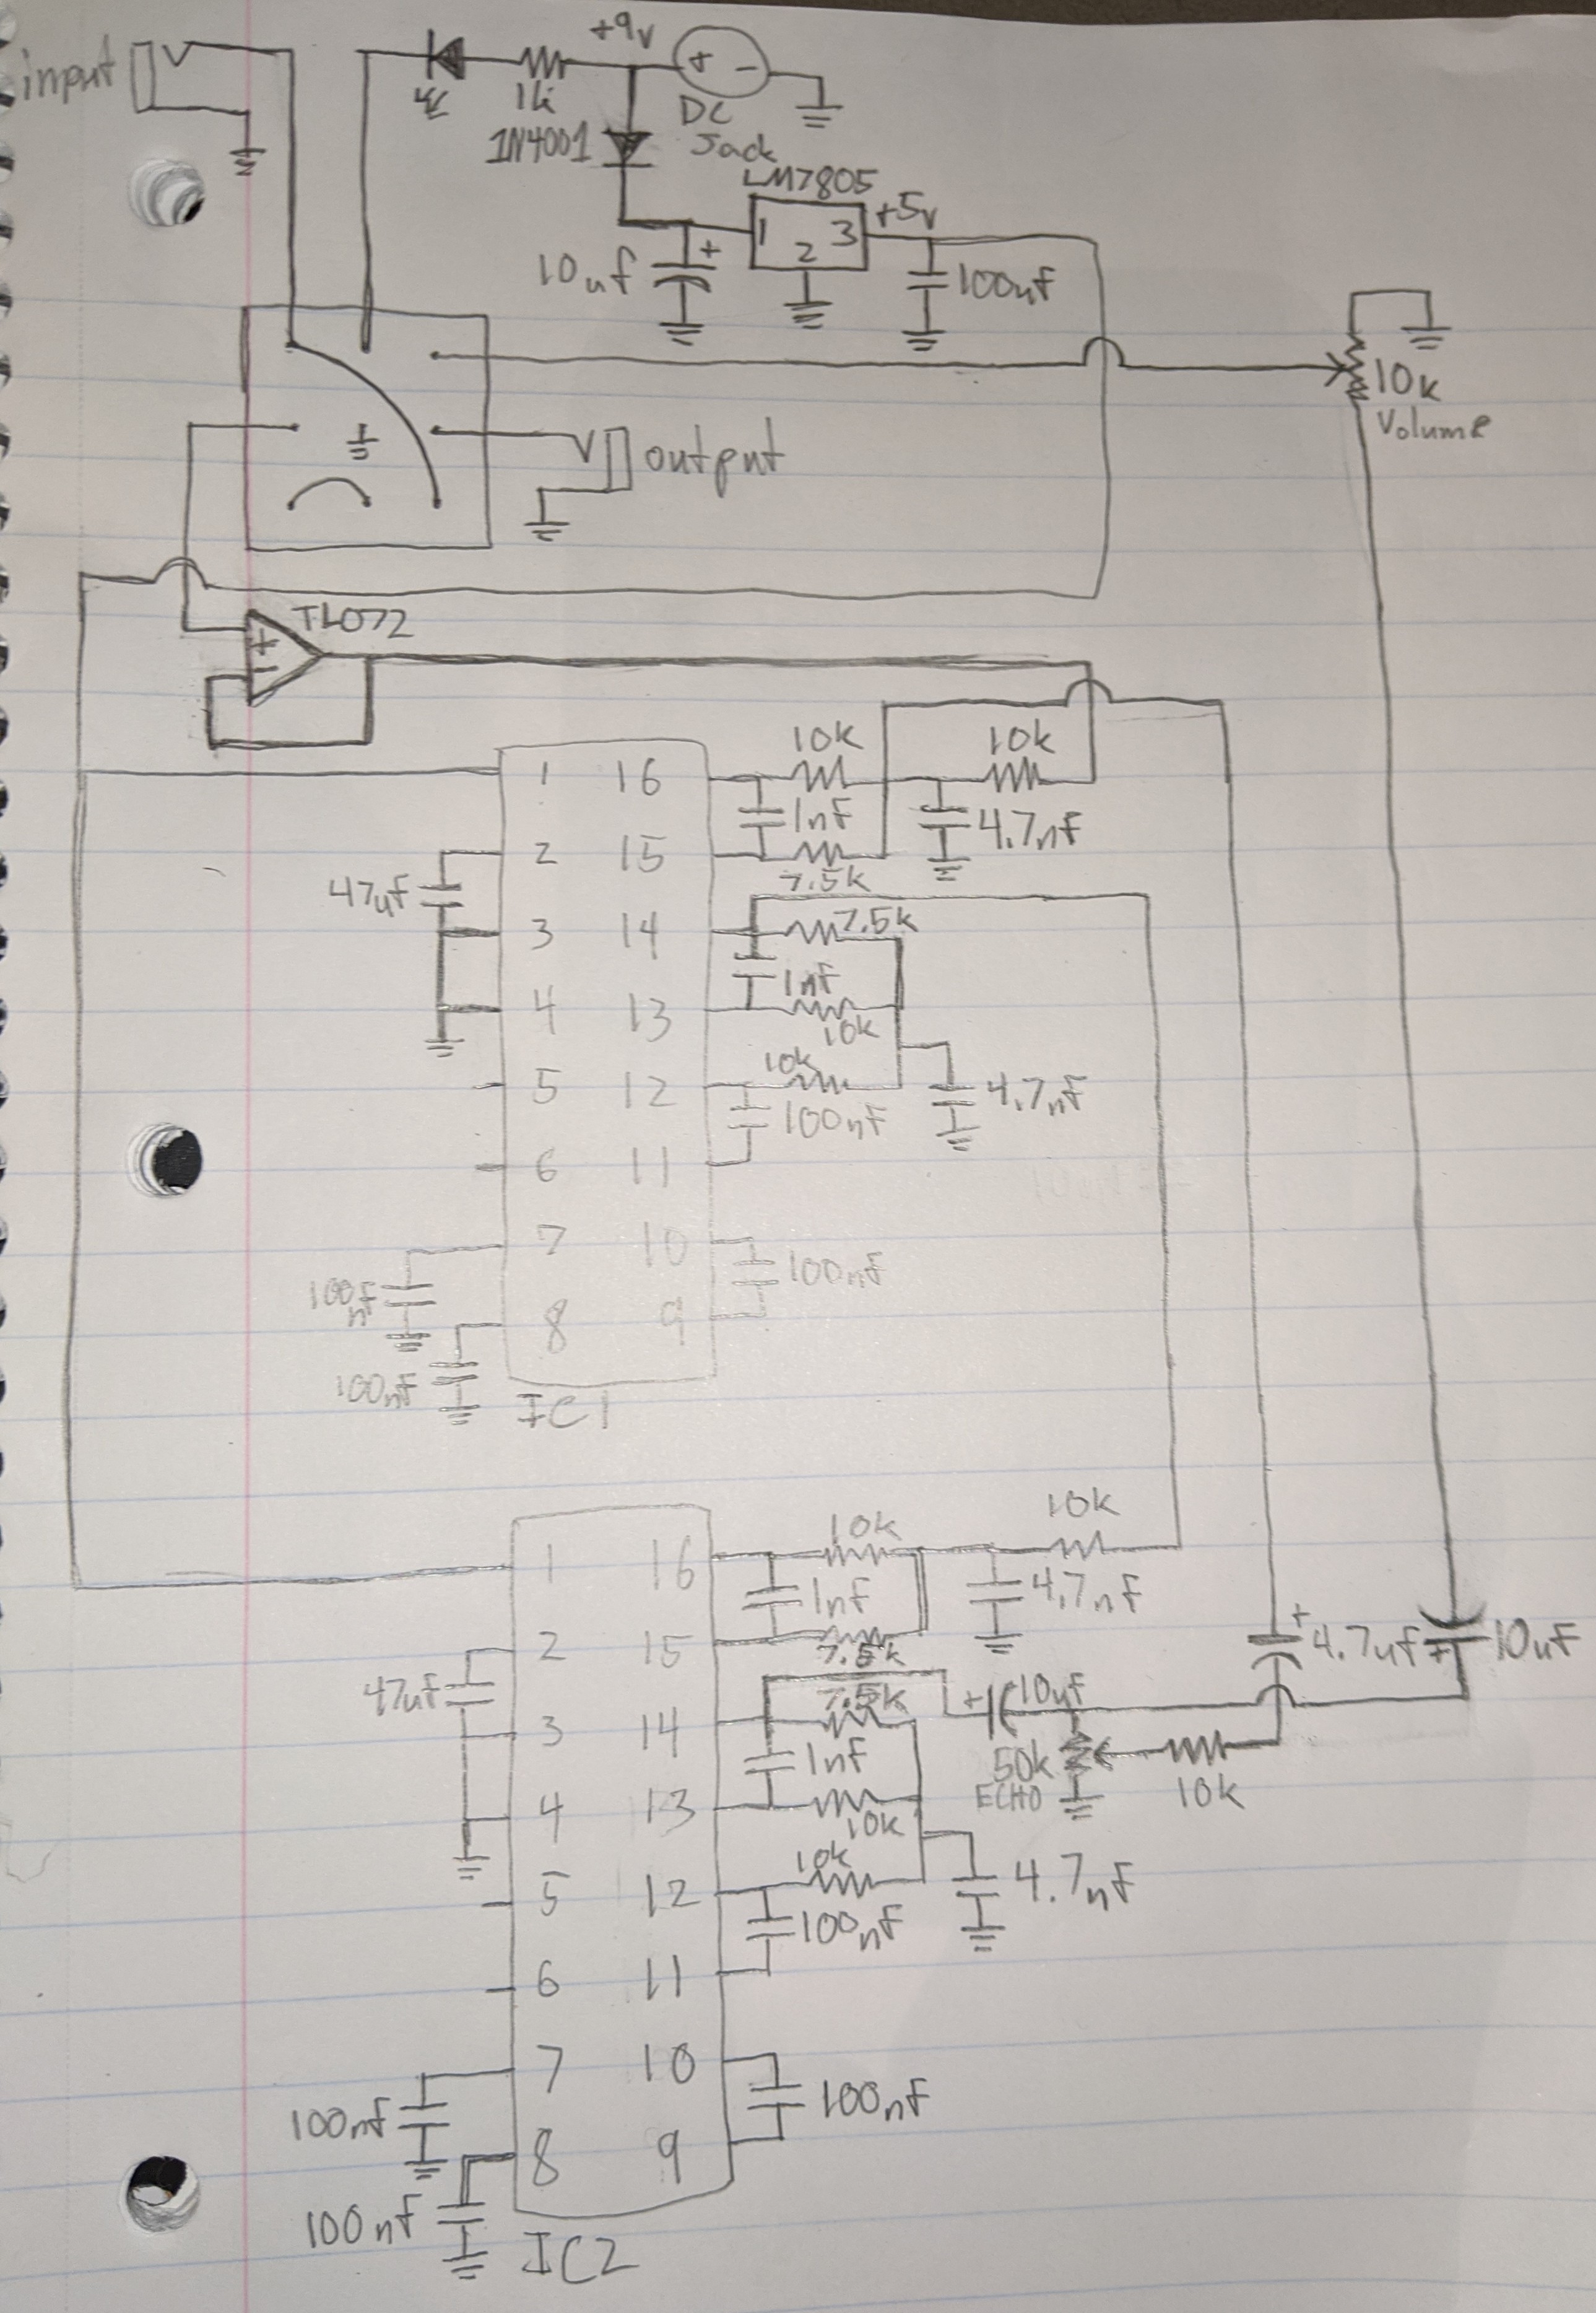 input
+9v
+ -
1k
DC
Jack
1N4001
LM7805
+5v
1 2 3
+
10uf
100nf
10k
Volume
output
TL072
+
-
10k
10k
1 16
1nF
4.7nF
2 15
7.5k
47uf
7.5k
3 14
1nF
4 13
10k
10k
5 12
100nF
4.7nF
6 11
7 10
100nF
100
nF
8 9
100nF
IC1
10k
10k
1 16
1nF
4.7nF
2 15
7.5k
+
4.7uf
+
10uF
47uF
7.5k
+
10uF
3 14
1nF
50k
ECHO
10k
4 13
10k
10k
5 12
100nF
4.7nF
6 11
7 10
100nF
100nF
8 9
100nF
IC2